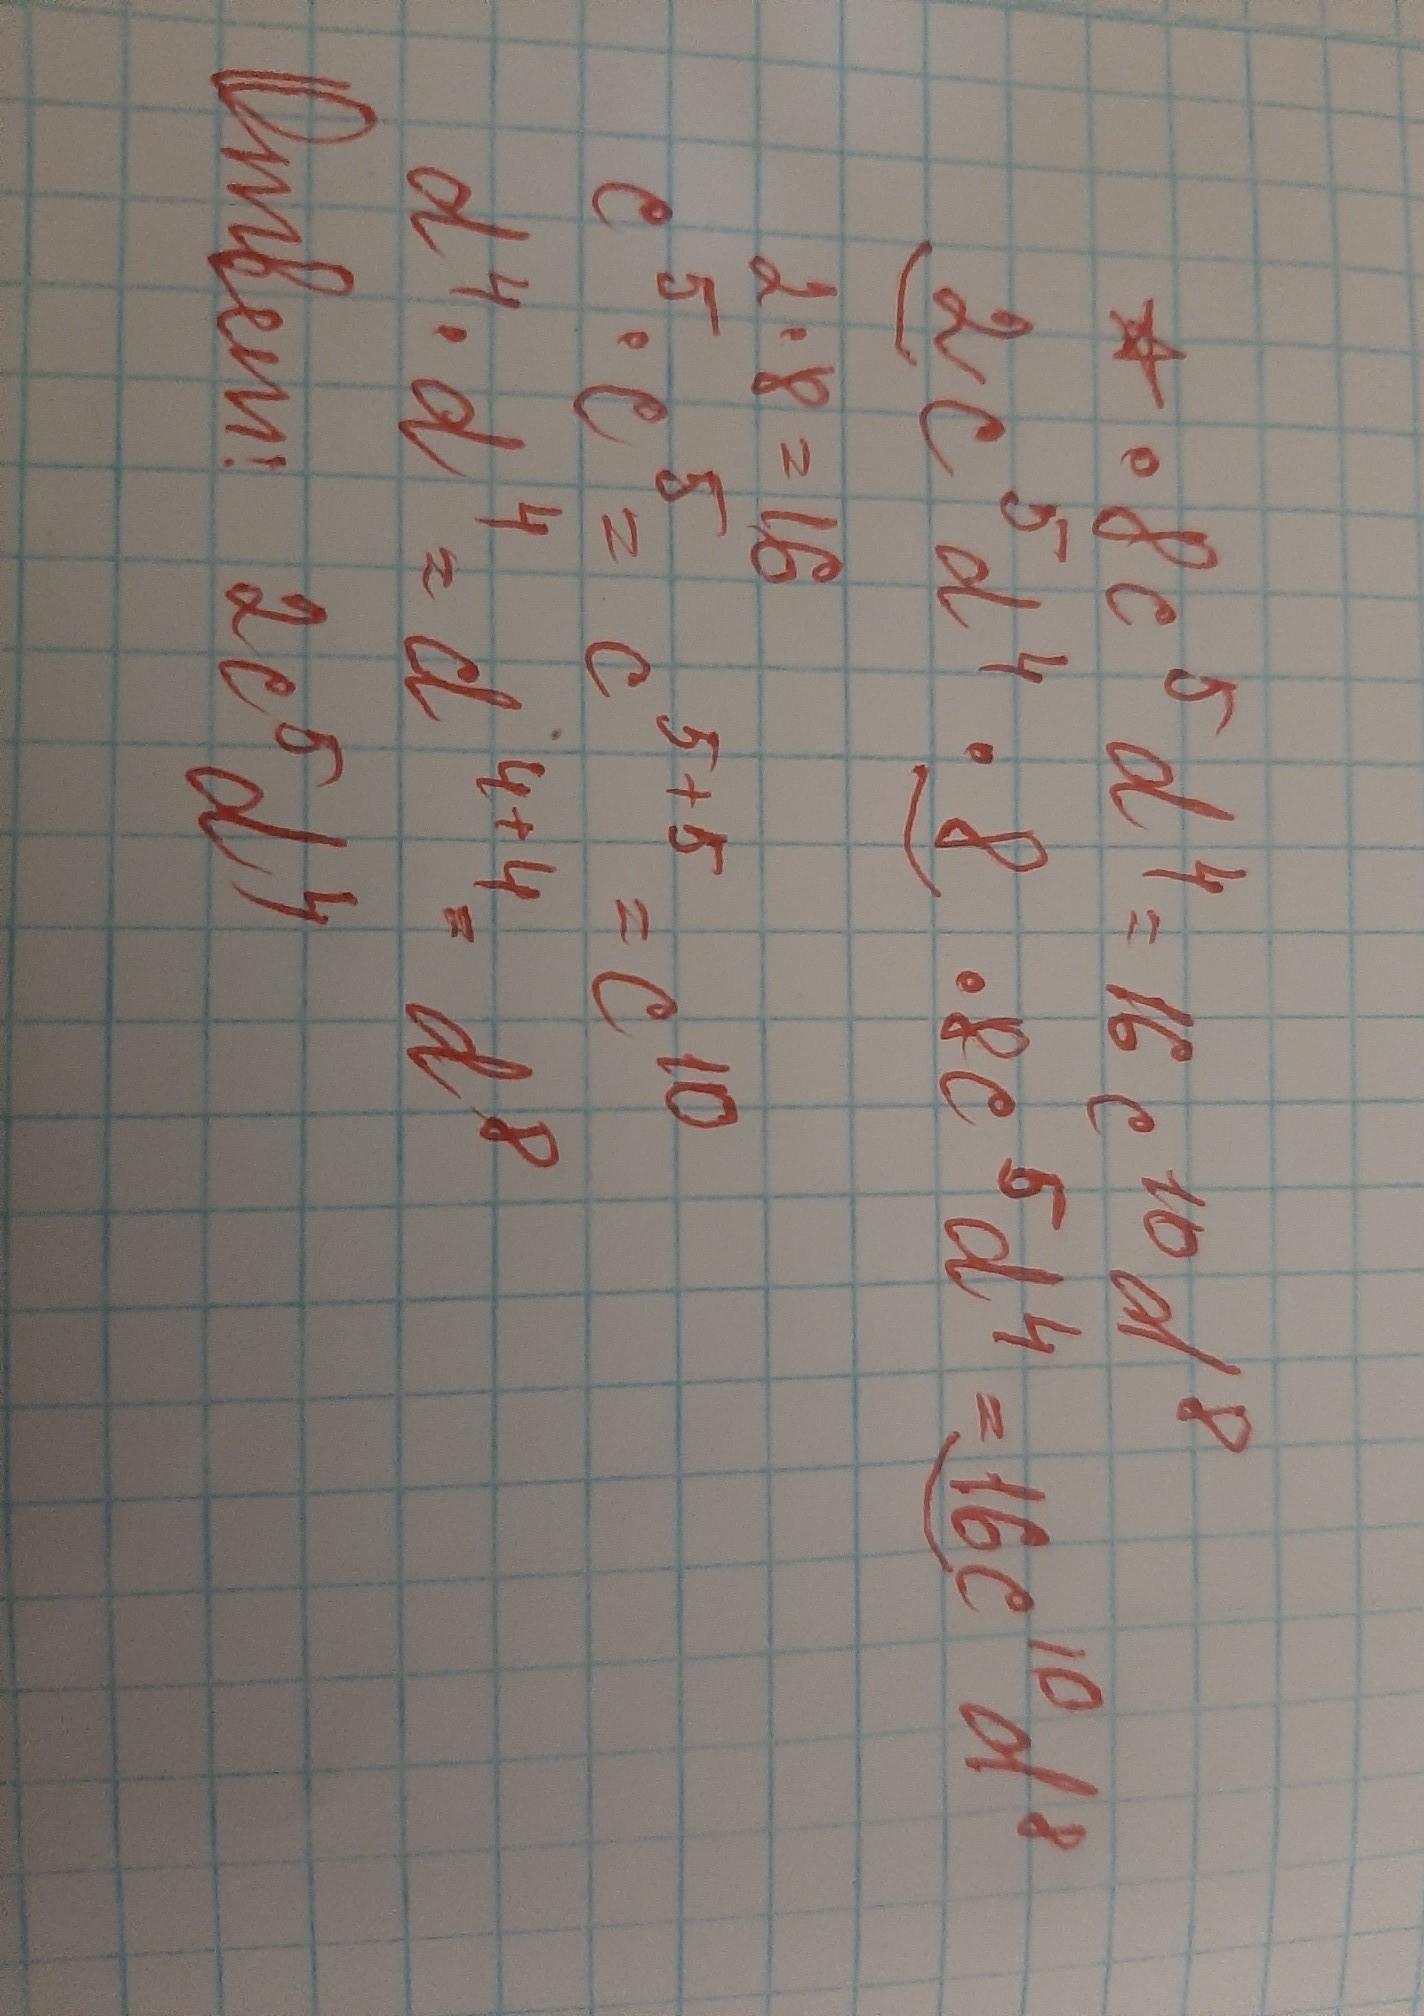 * · 8c⁵d⁴ = 16c¹⁰d⁸
2c⁵d⁴ · 8 · 8c⁵d⁴ = 16c¹⁰d⁸
2 · 8 = 16
c⁵ · c⁵ = c⁵⁺⁵ = c¹⁰
d⁴ · d⁴ = d⁴⁺⁴ = d⁸
Ответ: 2c⁵d⁴